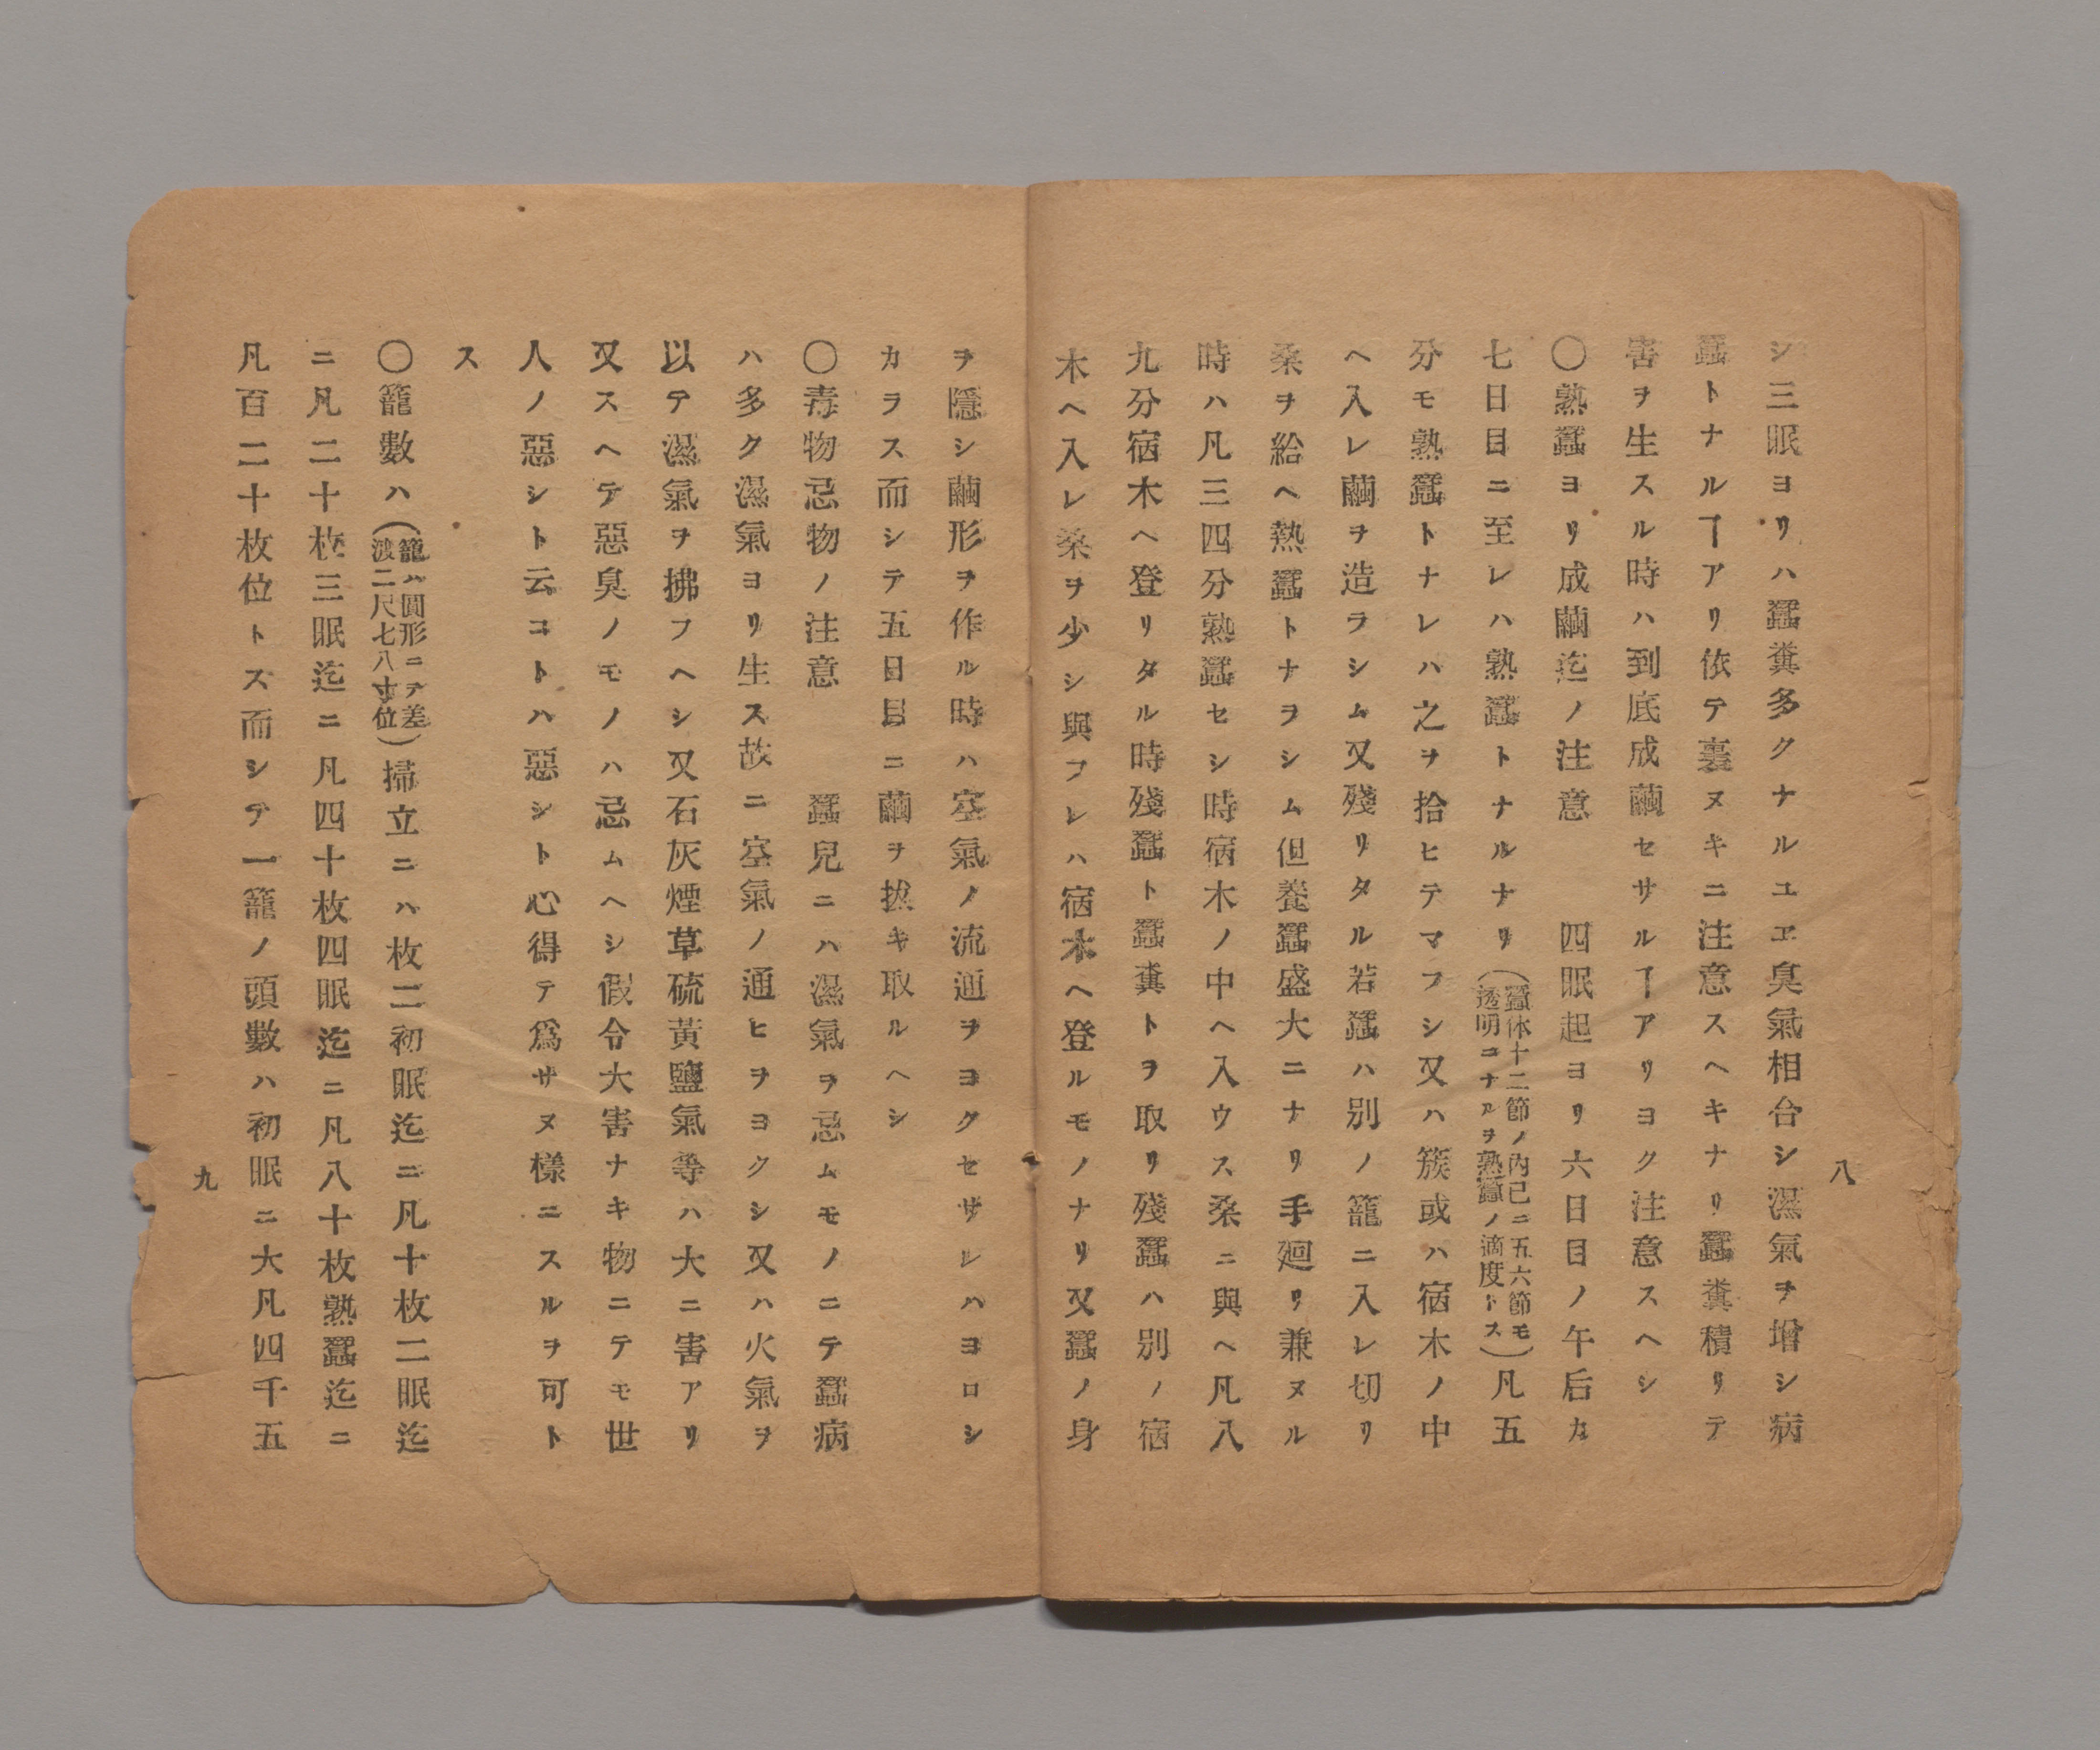 八
シ三眠ヨリハ蠶糞多クナルユヱ臭氣相合シ濕氣ヲ增シ病
蠶トナルヿアリ依テ裏ヌキニ注意スヘキナリ蠶糞積リテ
害ヲ生スル時ハ到底成繭セサルヿアリヨク注意スヘシ
〇熟蠶ヨリ成繭迄ノ注意　　四眠起ヨリ六日目ノ午后カ
七日目ニ至レハ熟蠶トナルナリ(蠶体十二節ノ内已ニ五六節モ透明ニナルヲ熟蠶ノ適度トス)凡五
分モ熟蠶トナレハ之ヲ拾ヒテマフシ又ハ簇或ハ宿木ノ中
ヘ入レ繭ヲ造ラシム又殘リタル若蠶ハ別ノ籠ニ入レ切リ
桑ヲ給ヘ熱蠶トナヲシム但養蠶盛大ニナリ手廻リ兼ヌル
時ハ凡三四分熟蠶セシ時宿木ノ中ヘ入ウス桑ニ與ヘ凡八
九分宿木ヘ登リタル時殘蠶ト蠶糞トヲ取リ殘蠶ハ別ノ宿
木ヘ入レ桑ヲ少シ與フレハ宿木ヘ登ルモノナリ又蠶ノ身
ヲ隱シ繭形ヲ作ル時ハ空氣ノ流通ヲヨクセザレハヨロシ
カラス而シテ五日目ニ繭ヲ拔キ取ルヘシ
〇毒物忌物ノ注意　　蠶兒ニハ濕氣ヲ忌ムモノニテ蠶病
ハ多ク濕氣ヨリ生ス故ニ空氣ノ通ヒヲヨクシ又ハ火氣ヲ
以テ濕氣ヲ拂フヘシ又石灰煙草硫黃鹽氣等ハ大ニ害アリ
又スヘテ惡臭ノモノハ忌ムヘシ假令大害ナキ物ニテモ世
人ノ惡シト云コトハ惡シト心得テ爲サヌ樣ニスルヲ可ト
ス
〇籠數ハ(籠ハ圓形ニテ差渡二尺七八寸位)掃立ニハ枚二初眠迄ニ凡十枚二眠迄
ニ凡二十枚三眠迄ニ凡四十枚四眠迄ニ凡八十枚熟蠶迄ニ
凡百二十枚位トス而シテ一籠ノ頭數ハ初眠ニ大凡四千五
九